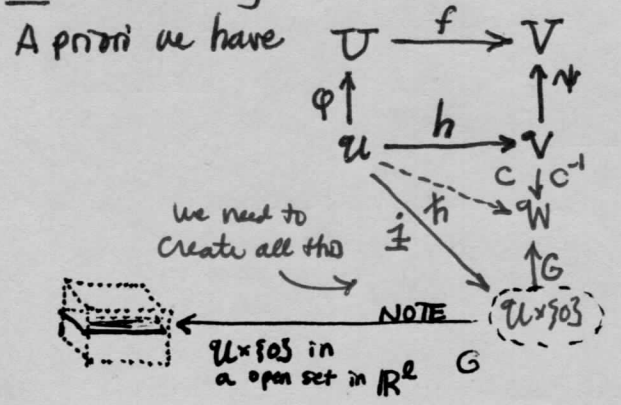 A priori we have U f V
φ ψ
𝒰 h 𝒱
C C⁻¹
ħ 𝒲
we need to
create all this
i
G
NOTE 𝒰×{0}
𝒰×{0} in G
a open set in ℝˡ